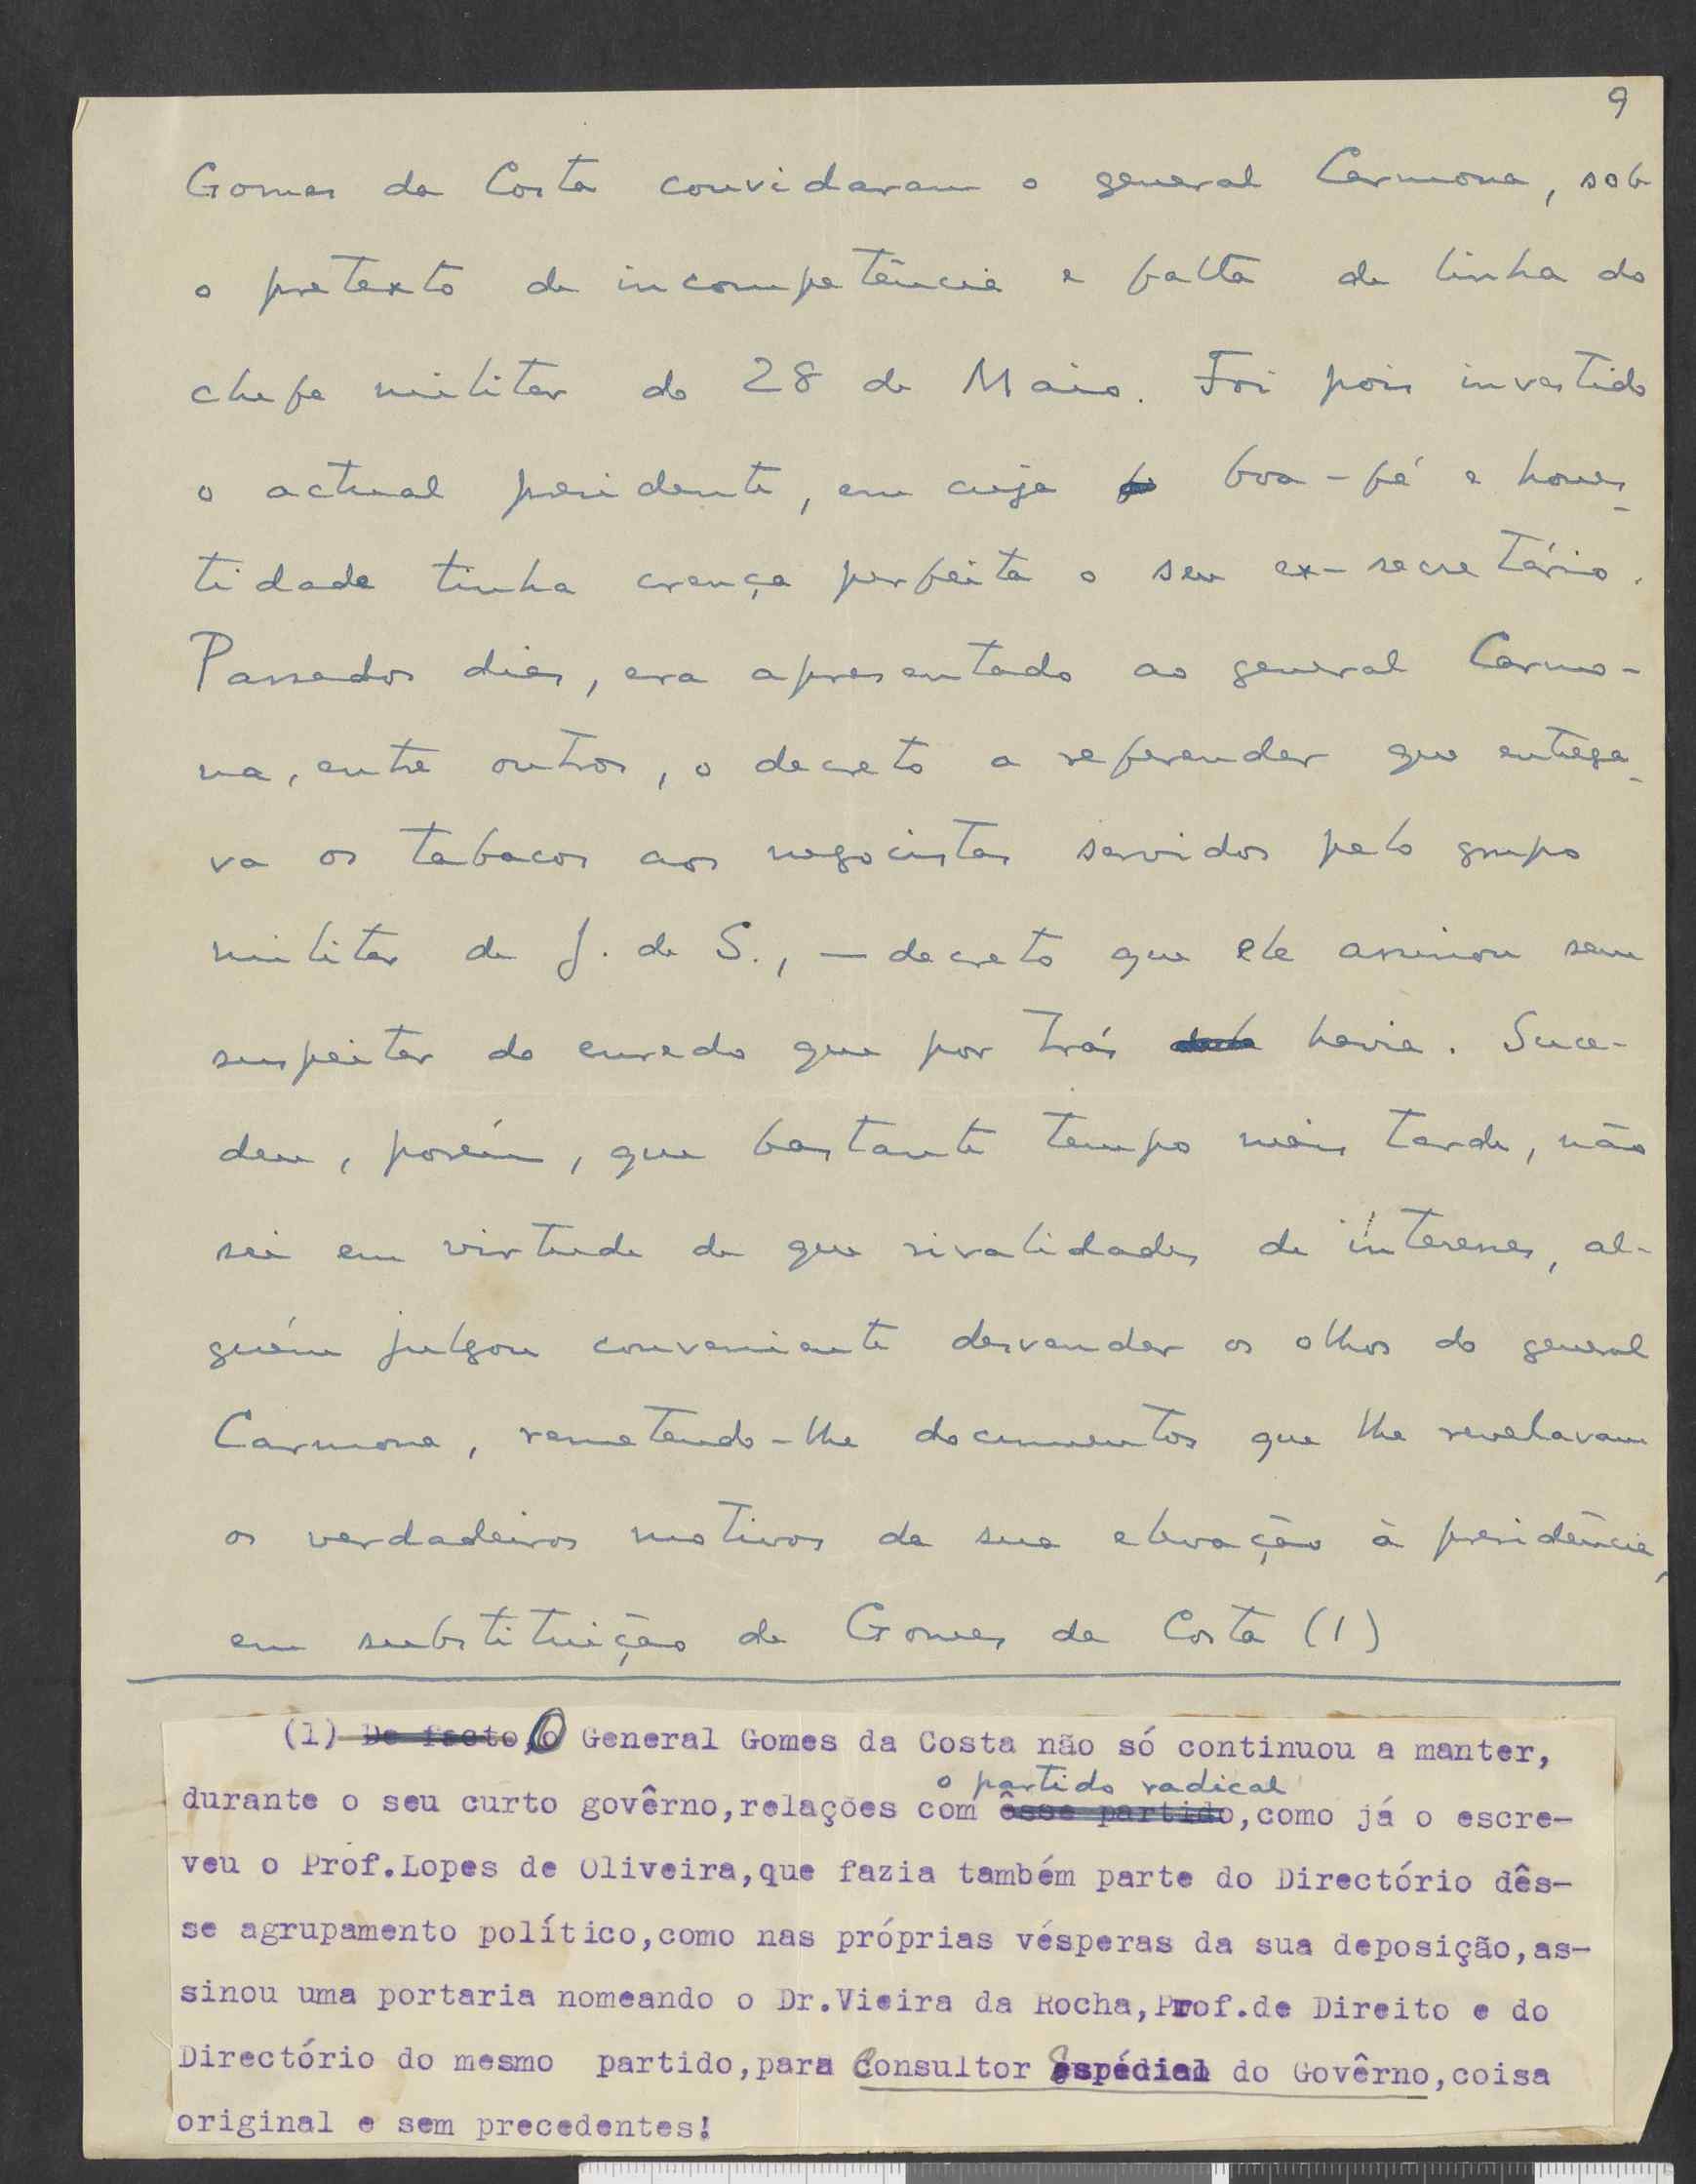 9
Gomes da Costa convidaram o general Carmona, sob
o pretexto de incompetência e falta de linha do
chefe militar do 28 de Maio. Foi pois investido
o actual presidente, em cuja boa-fé e hones-
tidade tinha crença perfeita o seu ex-secretário.
Passados dias, era apresentado ao general Carmo-
na, entre outros, o decreto a referendar que entrega-
va os tabacos aos negocistas servidos pelo grupo
militar de J. de S., — decreto que ele assinou sem
suspeitar do enredo que por trás havia. Suce-
deu, porém, que bastante tempo mais tarde, não
sei em virtude de que rivalidades de interesses, al-
guém julgou conveniente desvendar os olhos do general
Carmona, remetendo-lhe documentos que lhe revelavam
os verdadeiros motivos da sua elevação à presidência,
em substituição de Gomes da Costa (1)
(1) De facto, O General Gomes da Costa não só continuou a manter,
o partido radical
durante o seu curto govêrno,relações com êsse partido,como já o escre-
veu o Prof.Lopes de Oliveira,que fazia também parte do Directório dês-
se agrupamento político,como nas próprias vésperas da sua deposição,as-
sinou uma portaria nomeando o Dr.Vieira da Rocha,Prof.de Direito e do
Directório do mesmo partido,para Consultor do Govêrno,coisa
original e sem precedentes!